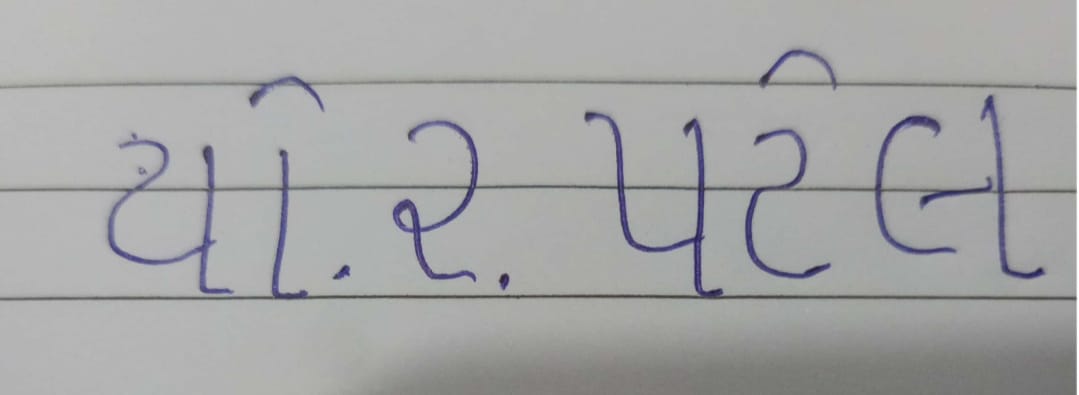 યો. ર. પટેલ